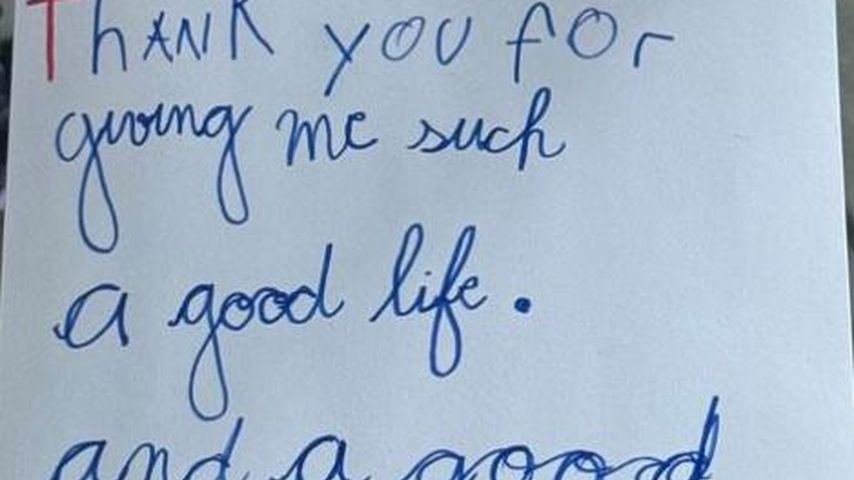 Thank you for
giving me such
a good life.
and a good